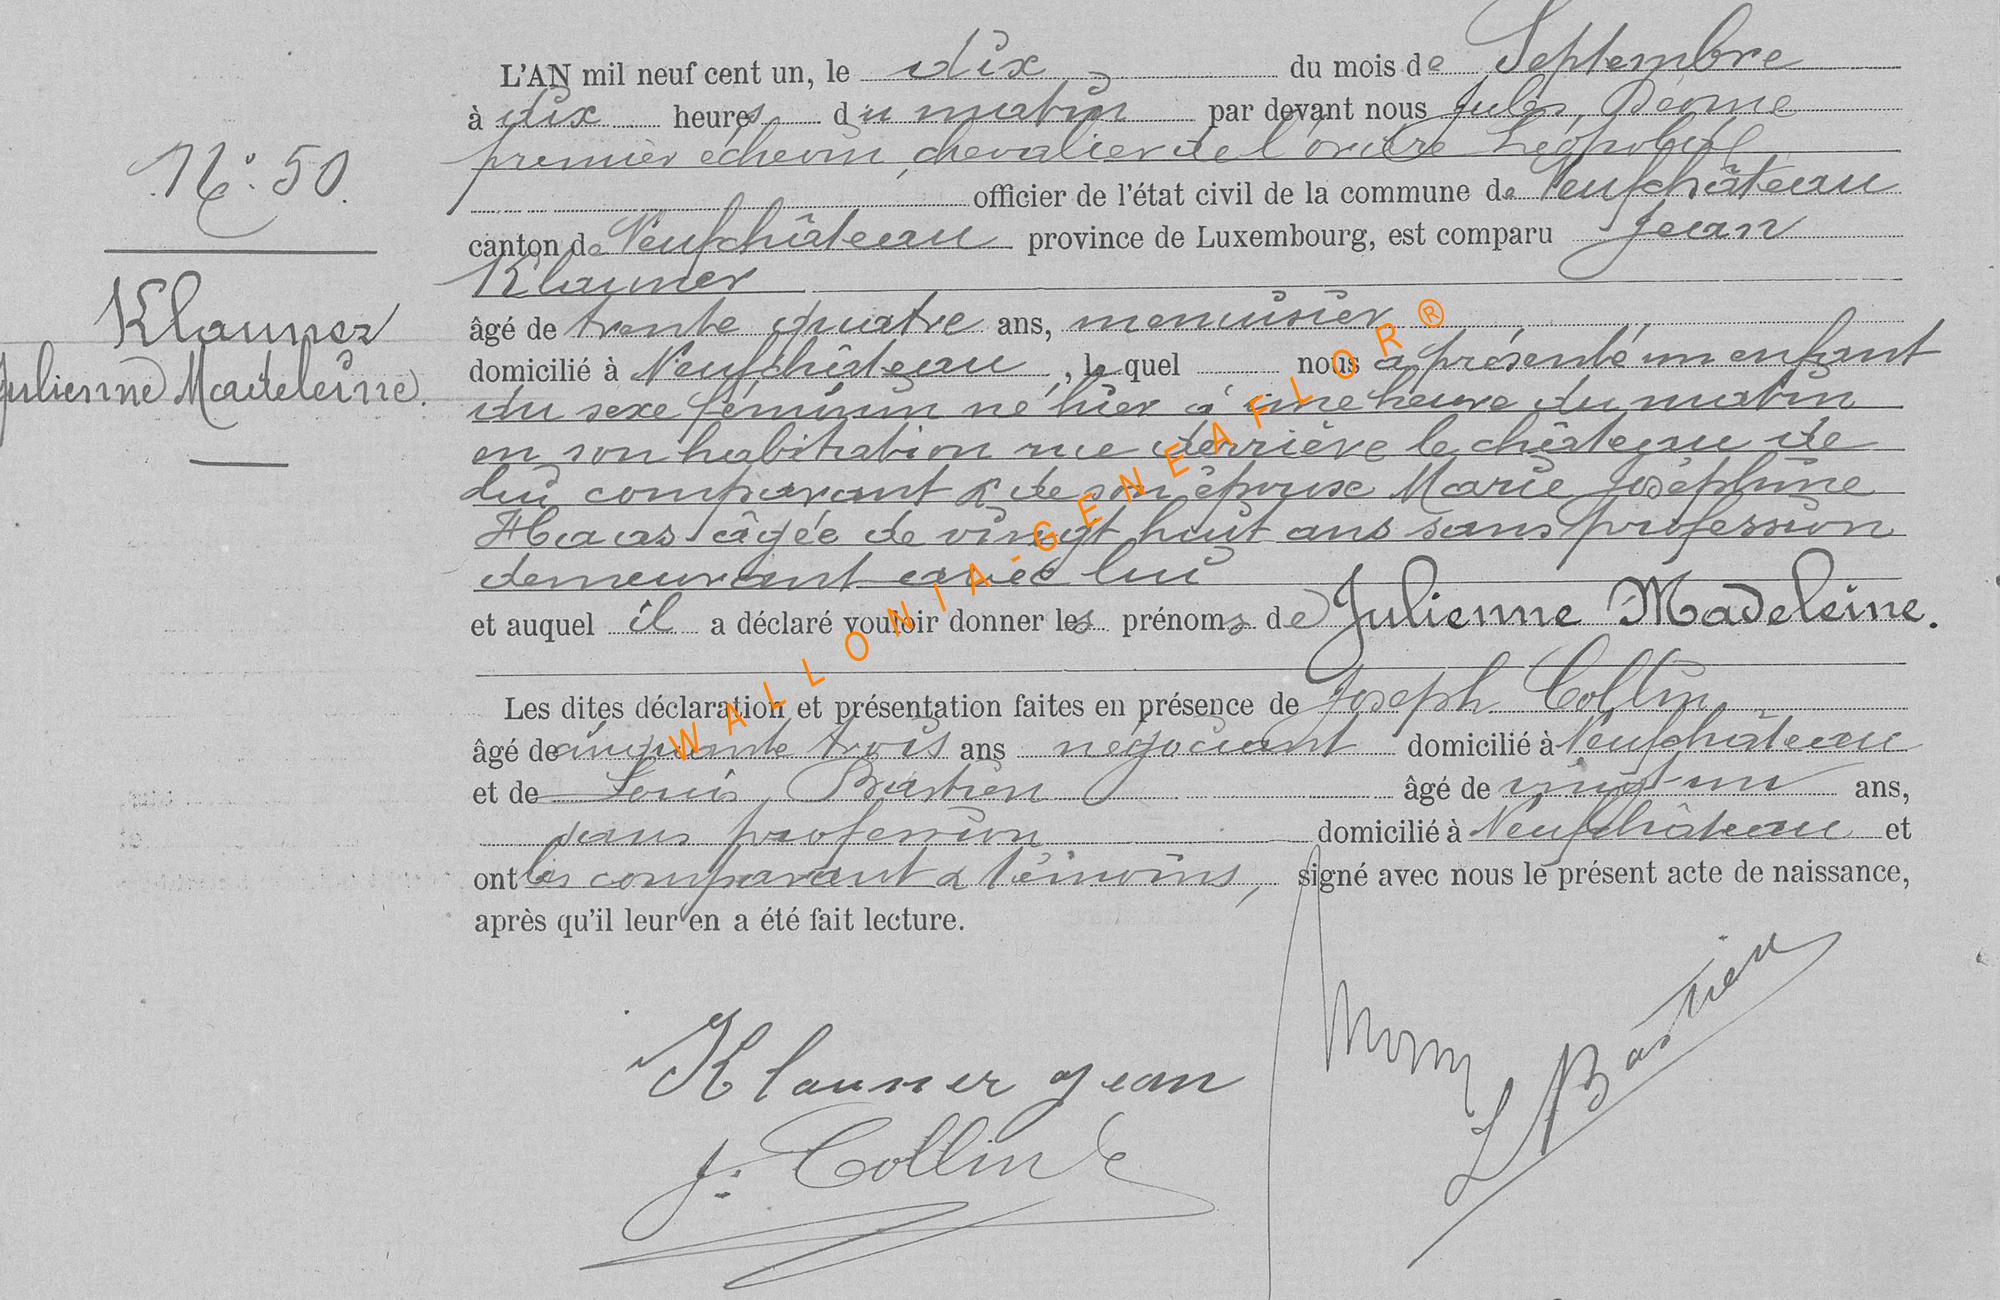 L'AN mil neuf cent un, le dix du mois de Septembre
à dix heures du matin par devant nous Jules,
premier échevin, chevalier de l'ordre Léopold
officier de l'état civil de la commune de Neufchâteau
canton de Neufchâteau province de Luxembourg, est comparu Jean
Klauner
âgé de trente quatre ans, menuisier
domicilié à Neufchâteau, lequel nous a présenté un enfant
du sexe féminin né hier à une heure du matin
en son habitation rue derrière le château de
lui comparant & de son épouse Marie Joséphine
Haas âgée de vingt huit ans sans profession
demeurant avec lui
et auquel il a déclaré vouloir donner les prénoms de Julienne Madeleine.
Les dites déclaration et présentation faites en présence de Joseph Collin
âgé de cinquante trois ans négociant domicilié à Neufchâteau
et de Louis, Bastien âgé de vingt-un ans,
sans profession domicilié à Neufchâteau et
ont les comparant & témoins, signé avec nous le présent acte de naissance,
après qu'il leur en a été fait lecture.
N°. 50.
Klauner
Julienne Madeleine.
Klauner Jean
J. Collin
L Bastien
WALLONIA-GENEAFLOR ®